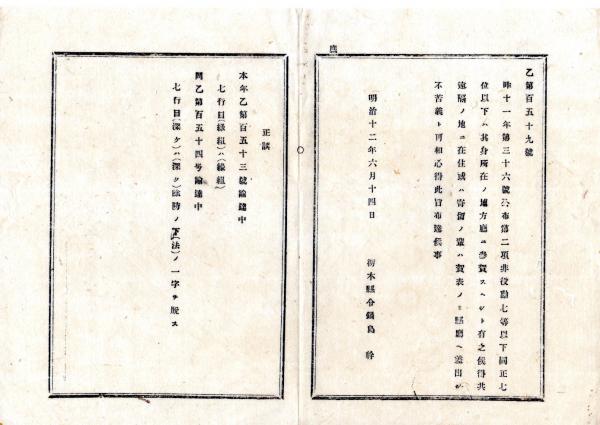 乙第百五十九號
昨十一年第三十六號公布第二項非役勲七等以下同正七
位以下ハ其身所在ノ地方廳ニ參賀スヘシト有之候得共
遠隔ノ地ニ在住或ハ寄留ノ輩ハ賀表ノミ縣廳ヘ差出シ
不苦義ト可相心得此旨布達候事
明治十二年六月十四日
栃木縣令鍋島 幹
正誤
本年乙第百五十三號諭達中
七行目(縁組)ハ(縁組)
同乙第百五十四号諭達中
七行目(深ケ)ハ(深ク)臨時ノ下(法)ノ一字ヲ脱ス